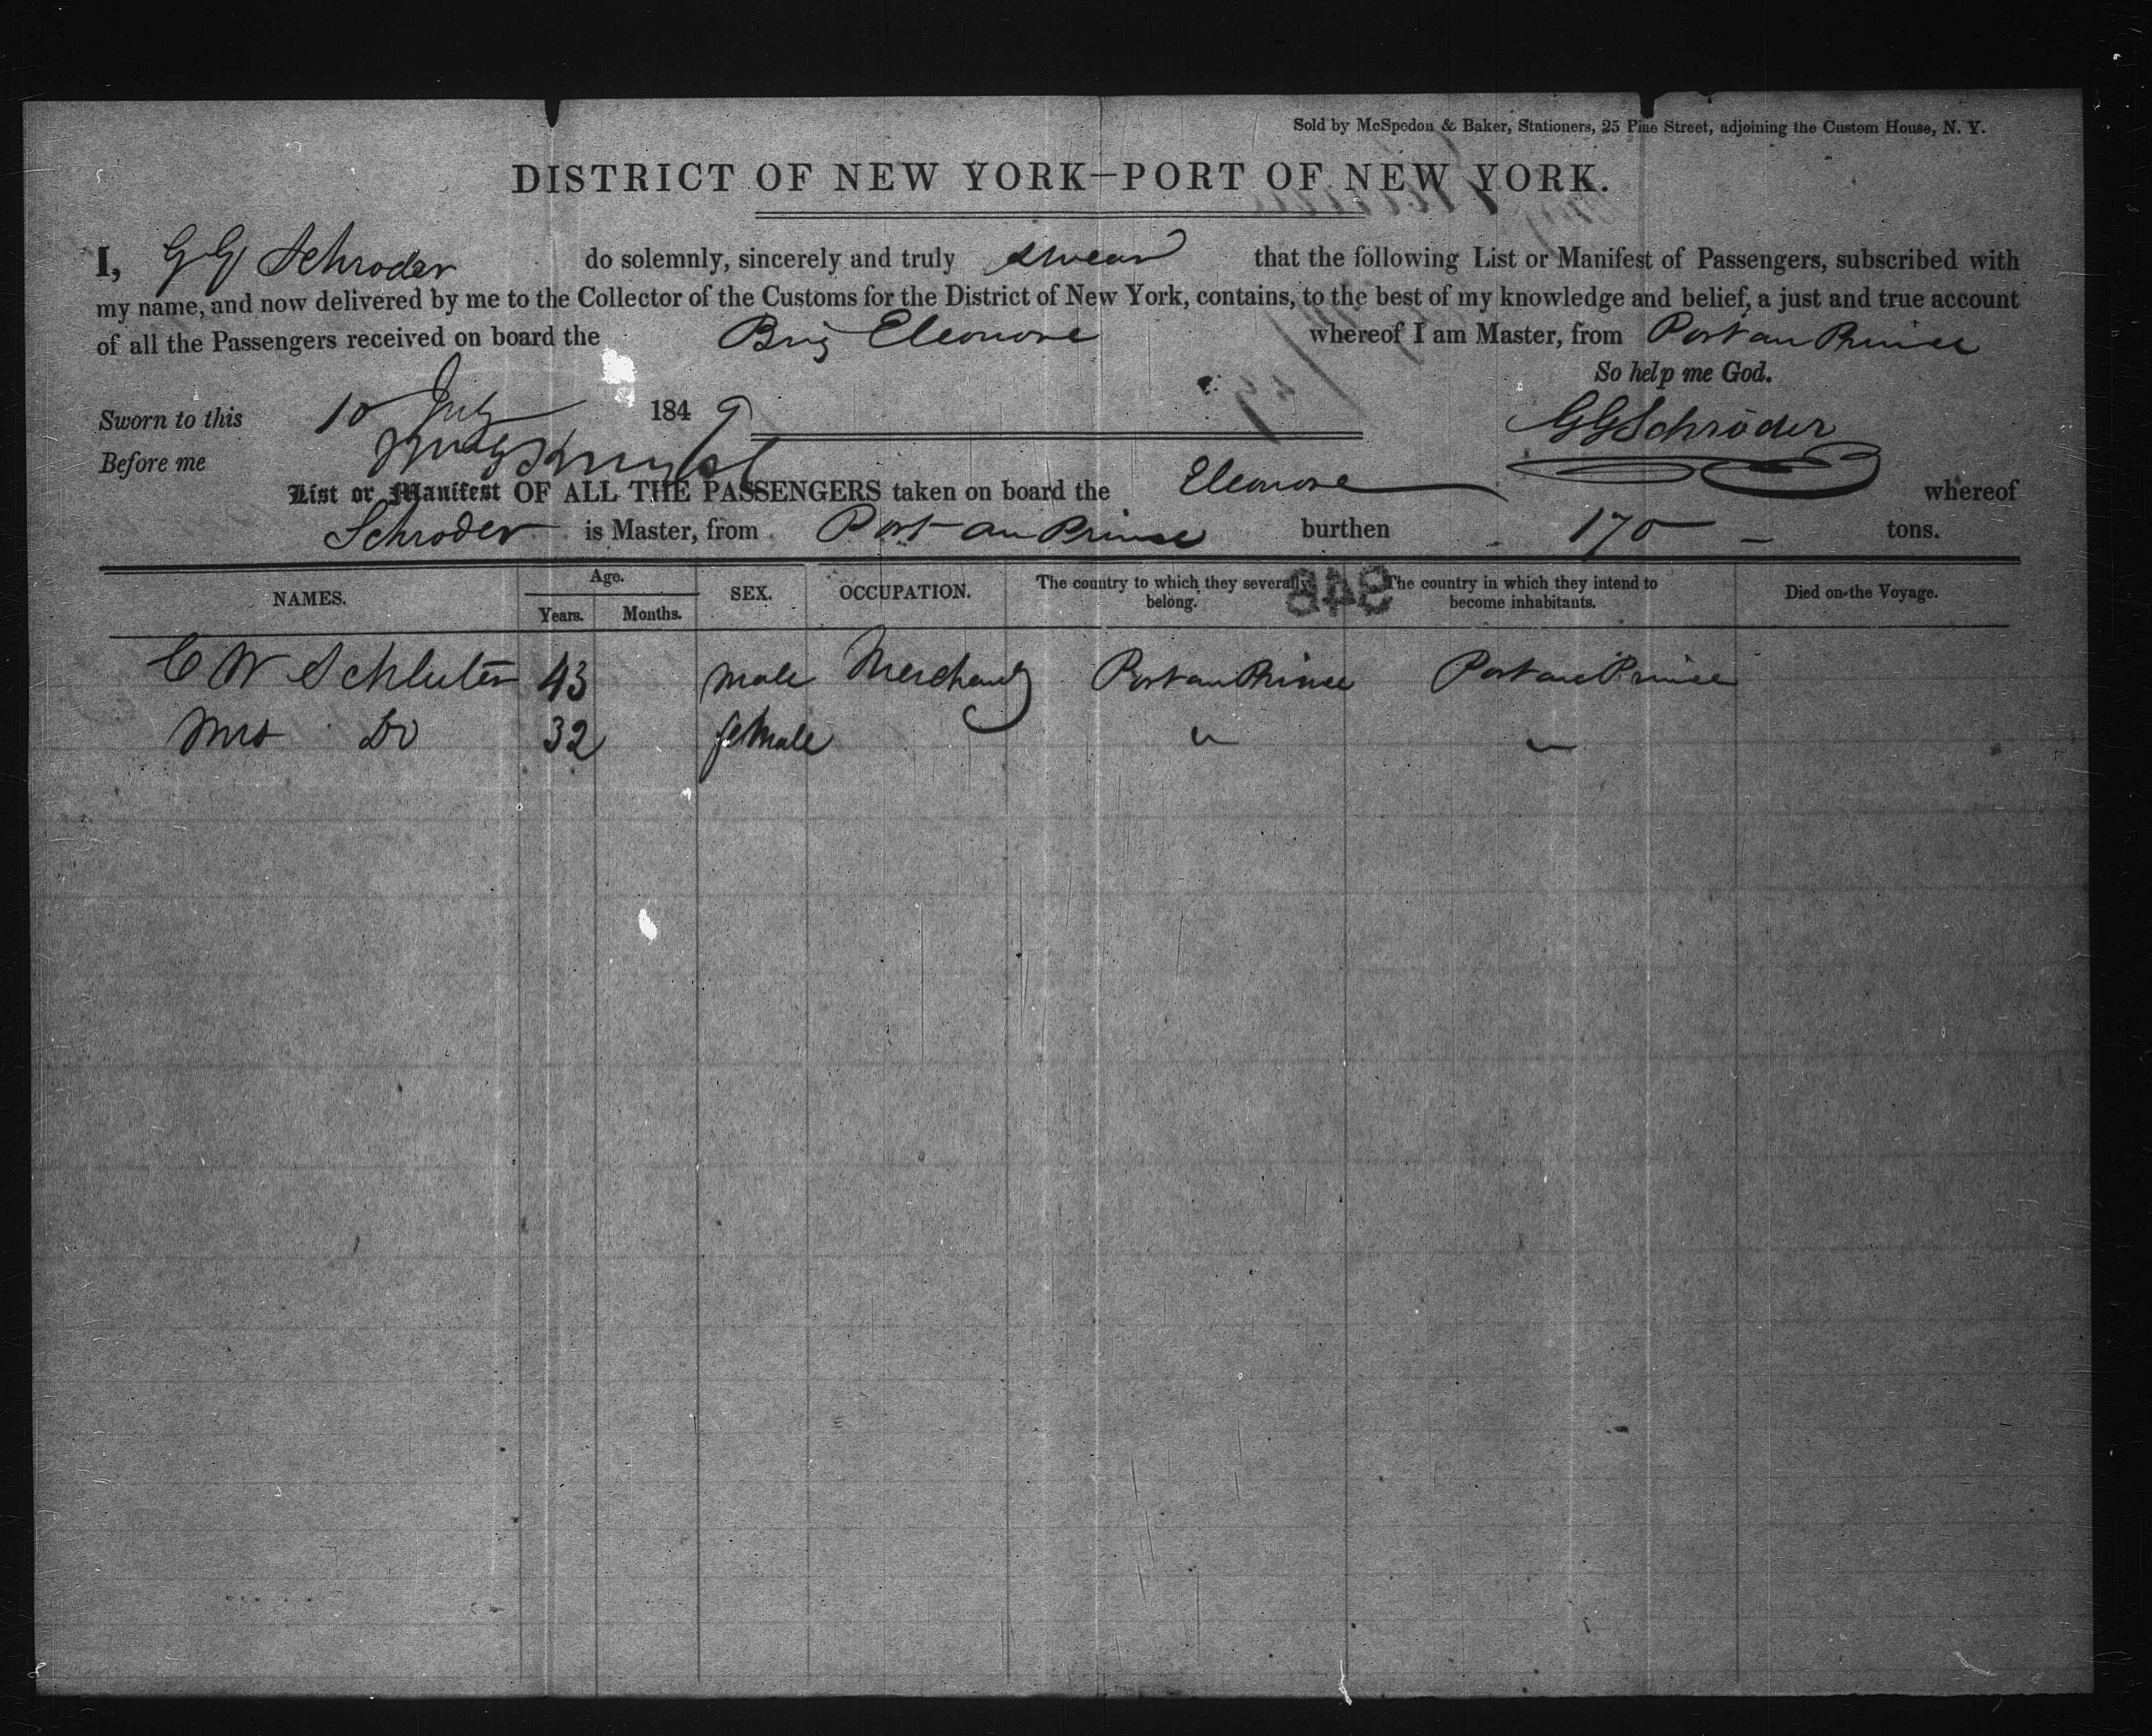 Sold by McSpedon & Baker, Stationers, 25 Pine Street, adjoining the Custom House, N. Y.
DISTRICT OF NEW YORK—PORT OF NEW YORK.
I, G G Schroder do solemnly, sincerely and truly swear that the following List or Manifest of Passengers, subscribed with
my name, and now delivered by me to the Collector of the Customs for the District of New York, contains, to the best of my knowledge and belief, a just and true account
of all the Passengers received on board the Brig Eleonore whereof I am Master, from Port au Prince
So help me God.
Sworn to this 10 July 1849 GG Schröder
Before me
List or Manifest OF ALL THE PASSENGERS taken on board the Eleonore whereof
Schroder is Master, from Port au Prince burthen 170 tons.
NAMES. Age. Years. Months. SEX. OCCUPATION. The country to which they severally belong. 848 The country in which they intend to become inhabitants. Died on the Voyage.
C W Schluter 43 male Merchant Port au Prince Port au Prince
Mrs Do 32 female " "